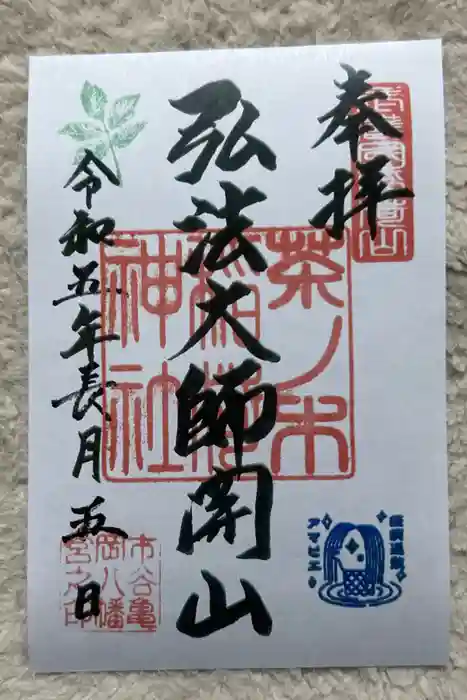 奉拝
弘法大師開山
茶ノ木
稲荷
神社
令和五年長月 日
市谷亀
岡八幡
宮之印
疫病退散
アマビエ